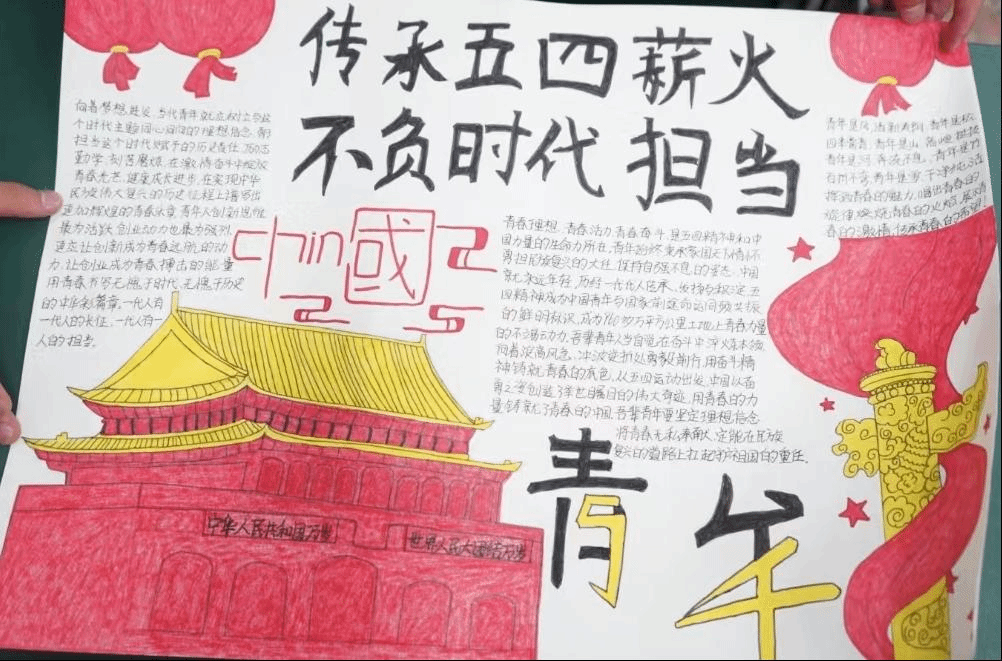 传承五四薪火
不负时代担当
向着梦想进发,当代青年就应树立与这
个时代主题同心同向的理想信念,勇于
担当这个时代赋予的历史责任,
勤学、刻苦磨炼,在激情奋斗中绽放
青春光芒,健康成长进步,在实现中华
民族伟大复兴的历史征程上谱写出
更加辉煌的青春乐章。青年人创新思维
最为活跃、创业动力也最为强烈,
更应让创新成为青春远航的动
力,让创业成为青春搏击的能量
用青春书写无愧于时代、无愧于历史
的中华彩篇章。一代人有
一代人的长征,一代人有一
代人的担当。
chin國
青春理想,青春活力,青春奋斗,是五四精神和中
国力量的生命力所在。青年始终秉承家国天下情怀
勇担民族复兴的大任,保持自强不息的姿态,中国
就永远年轻,历经一代代人传承、坚持与积淀,五
四精神成为中国青年与国家前途命运同频共振
的鲜明标识,成为960多万平方公里土地上青春力量
的不竭动力。吾辈青年人当自觉在奋斗中淬炼本领,
伺着浪高风急、冲波逆折处勇毅前行,用奋斗精
神铸就青春的底色。从五四运动出发,中国以奋
勇之姿创造了举世瞩目的伟大奇迹,用青春的力
量铸就了青春的中国,吾辈青年要坚定理想信念
将青春无私奉献,定能在民族
复兴的道路上扛起护祖国的重任。
青年是风,清新爽朗,青年是松,
四季常青,青年是山,
青年是河,奔流不息。青年是竹
挥洒青春的魅力,唱出青春的
旋律,燃烧青春的火焰,展示青
春的激情,传承青春的希望!
中华人民共和国万岁
世界人民大团结万岁
青年